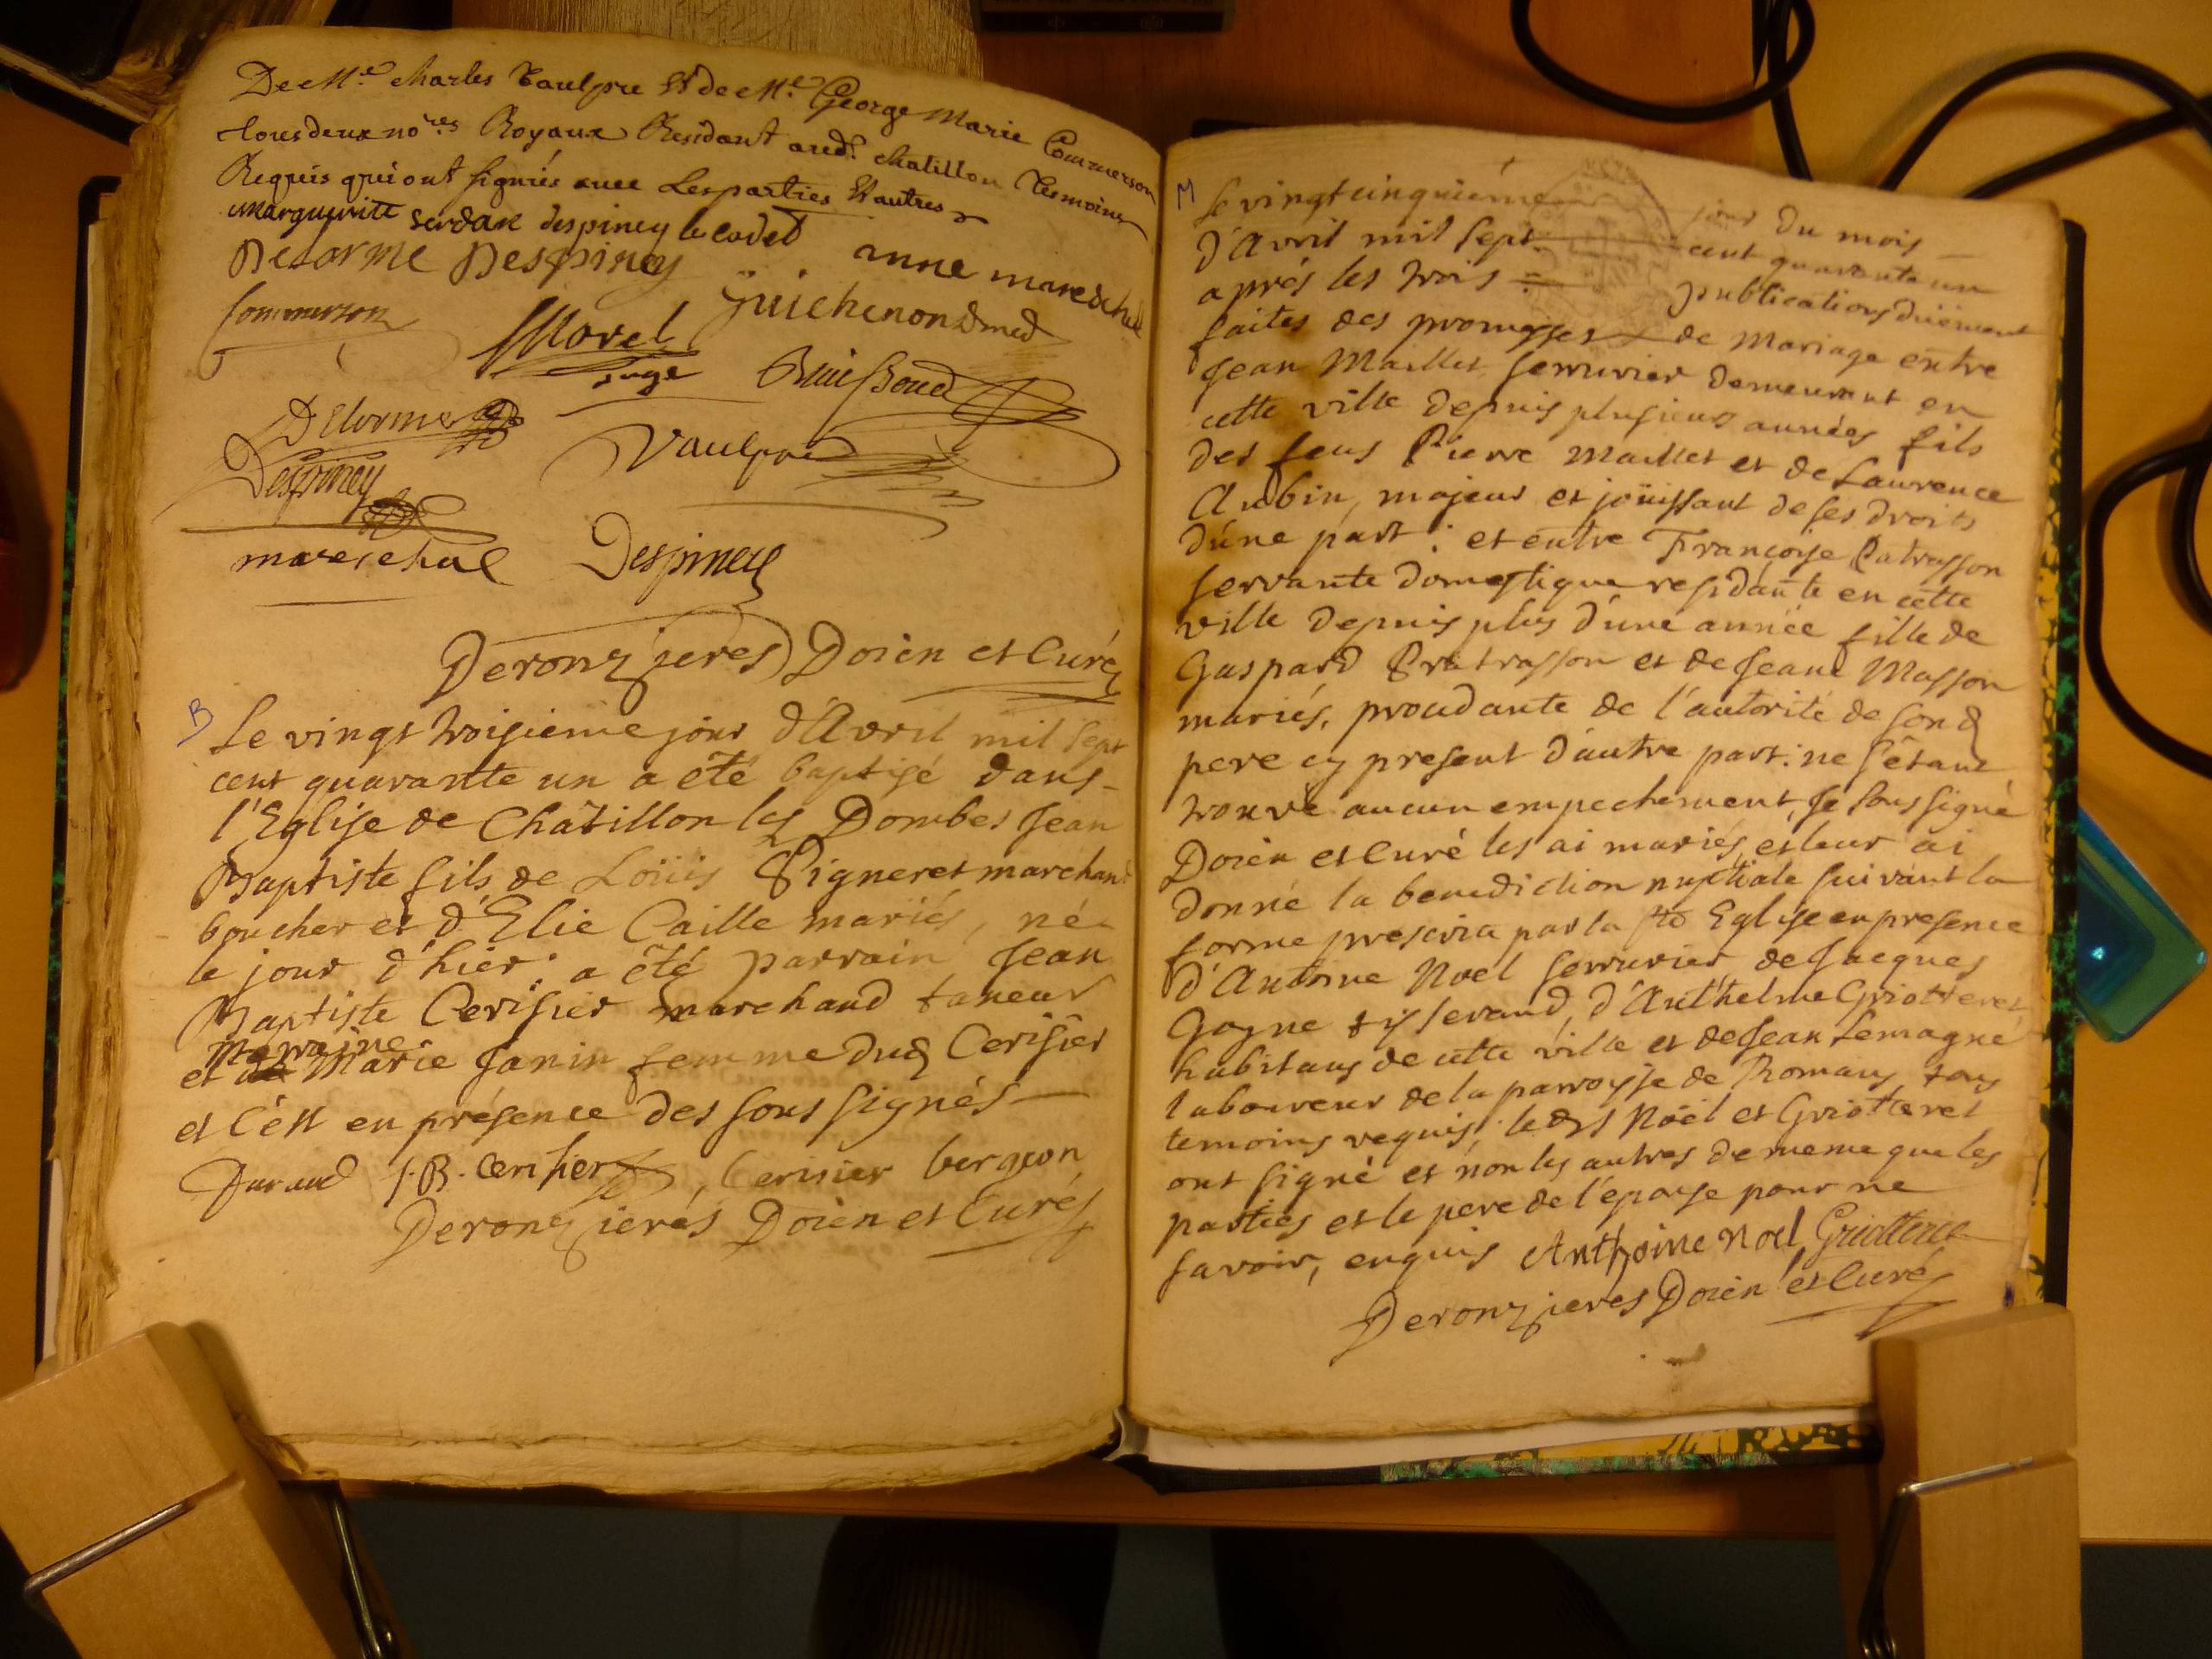 De Me. charles Vaulpre Et de Me. George Marie Commerson
tous deux nores Royaux Residant audt. chatillon Tesmoins
Requis qui ont signiés avec Les parties Et autres
marguerite serdan despiney le cadet
Delorme Despiney anne marechal
Commerson Guichenon dmed
Morel
juge Buissoud
Delorme
Vaulpré
Despiney
mareschal Despiney
Deronzieres Doïen et Curé
B
Le vingt troisieme jour d'Avril mil sept
cent quarante un a été baptisé dans
l'Eglise de Châtillon les Dombes Jean
Baptiste fils de Loüis Pigneret marchand
boucher et d'Elie Caille mariés, né
le jour d'hier : a été parrain Jean
Baptiste Cerisier marchand taneur
maraine
et Marie Janin femme dud Cerisier
et c'ést en présence des sous signés
Durand J. B. Cerisier, Cerisier bergeon
Deronzierés Doïen et Curé
M
Le vingt cinquiéme jour du mois
d'Avril mil sept cent quarante un
aprés les trois publications düement
faites des promesses de Mariage entre
Jean Maillet serrurier demeurant en
cette ville depuis plusieurs années fils
des feus Pierre Maillet et de Laurence
Aubin, majeur et joüissant de ses droits
d'une part : et entre Françoise Patrasson
servante domestique residante en cette
ville depuis plus d'une année fille de
Gaspard Patrasson et de Jeane Masson
mariés, procedante de l'autorité de sond
pere cy present d'autre part : ne s'étant
trouvé aucun empechement, Je sous signé
Doïen et Curé les ai mariés, et leur ai
donné la benediction nuptiale suivant la
forme prescrite par la Ste Eglise en presence
d'Antoine Noel serrurier, de Jacques
Gogne tisserand, d'Anthelme Griotteret
habitans de cette ville et de Jean Lemagne
laboureur de la parroisse de Romans, tous
temoins requis, leds Noël et Griotteret
ont signé et non les autres de meme que les
parties et le pere de l'épouse pour ne
savoir, enquis Anthoine Noel Griotteret
Deronzieres Doïen et Curé